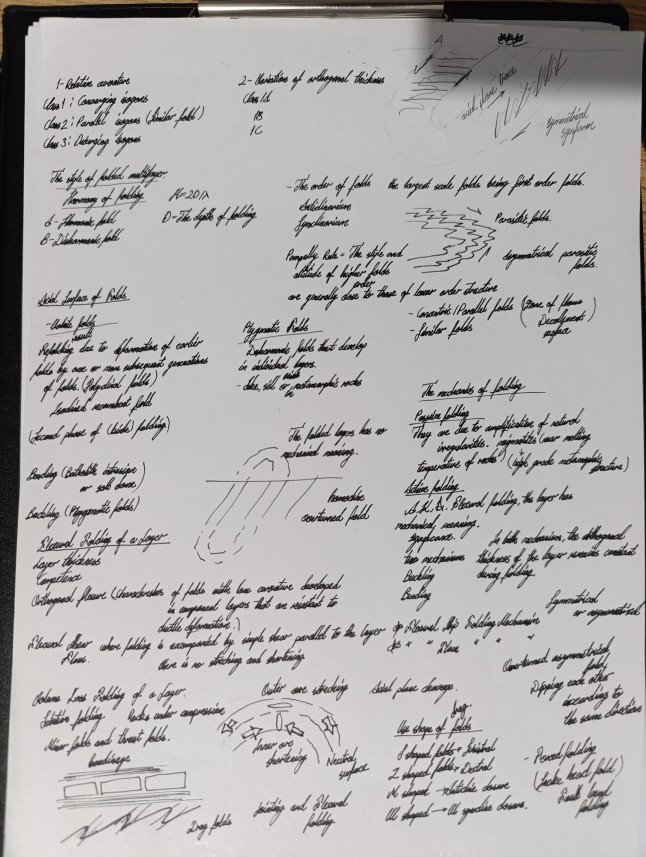 1- Relative curvature
Class 1: Converging isogons
Class 2: Parallel isogons (Similar folds)
Class 3: Diverging isogons
2- Variation of orthogonal thickness
Class 1A
1B
1C
A
axial plane trace
symmetrical
synform
The style of folded multilayer
Harmony of folding
A- Harmonic fold
B- Disharmonic fold
D= The depth of folding
- The order of folds the largest scale folds being first order folds.
Anticlinorium
Synclinorium
Parasitic folds.
asymmetrical parasitic
folds.
Pumpelly Rule = The style and
attitude of higher order folds
are generally close to those of lower order structure
- Concentric/Parallel folds (Zone of
Decollement
surface)
- Similar folds
Axial Surface of Folds
folds
Refolding due to deformation of earlier
folds by one or more subsequent generations
of folds (Polyclinal folds)
recumbent fold
(Second phase of folding)
Ptygmatic Folds
Disharmonic folds that develop
in individual layers.
- dike, sill or in metamorphic rocks
The folded layers has no
mechanical meaning.
The mechanics of folding
Passive folding
They are due to amplification of natural
irregularities. migmatites (near melting
temperature of rocks) (high grade metamorphic
structure)
Active folding
A.K.A. Flexural folding, the layer has
mechanically meaning.
significance.
Two mechanisms
Buckling
Bending
In both mechanism, the orthogonal
thickness of the layer remains constant
during folding.
Bending (Batholite intrusion
or salt dome)
Buckling (Ptygmatic folds)
overturned fold
Flexural Folding of a Layer
Layer thickness
Competence
Orthogonal flexure (Characteristics of folds with low curvature developed
in competent layers that are resistant to
ductile deformation.)
Flexural Shear where folding is accompanied by simple shear parallel to the layer
Flow. there is no stretching and shortening
Flexural Slip Folding Mechanism
" " Flow " " "
Symmetrical
or asymmetrical
Overturned asymmetrically
folds
Dipping each other
according to
the same direction
Volume Loss Folding of a Layer.
folding Rocks under compressive
Minor folds and thrust folds.
boudinage
Outer arc stretching
Inner arc
shortening
Neutral
surface
Axial plane cleavage.
Use shape of folds
S shaped folds → Sinistral
Z shaped folds → Dextral
M shaped → Anticline closure
W shaped → syncline closure.
- Forced folding
(Snake head fold)
Fault bend
folding
Drag folds
Jointing and Flexural
folding